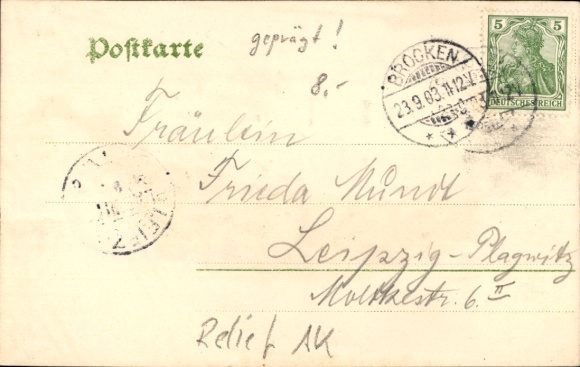 Postkarte
geprägt!
8.-
BROCKEN
23.9.03. 11-12V.
5 5
DEUTSCHES REICH
Fräulein
Frieda Mundt
Leipzig-Plagwitz
Moltkestr. 6 II
Relief AK